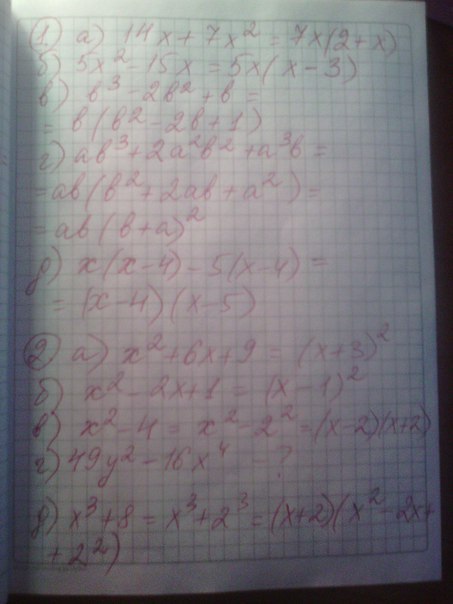 1) а) 14x + 7x² = 7x(2+x)
б) 5x² - 15x = 5x(x-3)
в) в³ - 2в² + в =
= в(в² - 2в + 1)
г) ав³ + 2а²в² + а³в =
= ав(в² + 2ав + а²) =
= ав(в+а)²
д) x(x-4) - 5(x-4) =
= (x-4)(x-5)
2) а) x² + 6x + 9 = (x+3)²
б) x² - 2x + 1 = (x-1)²
в) x² - 4 = x² - 2² = (x-2)(x+2)
г) 49y² - 16x⁴ - ?
д) x³ + 8 = x³ + 2³ = (x+2)(x² - 2x +
+ 2²)